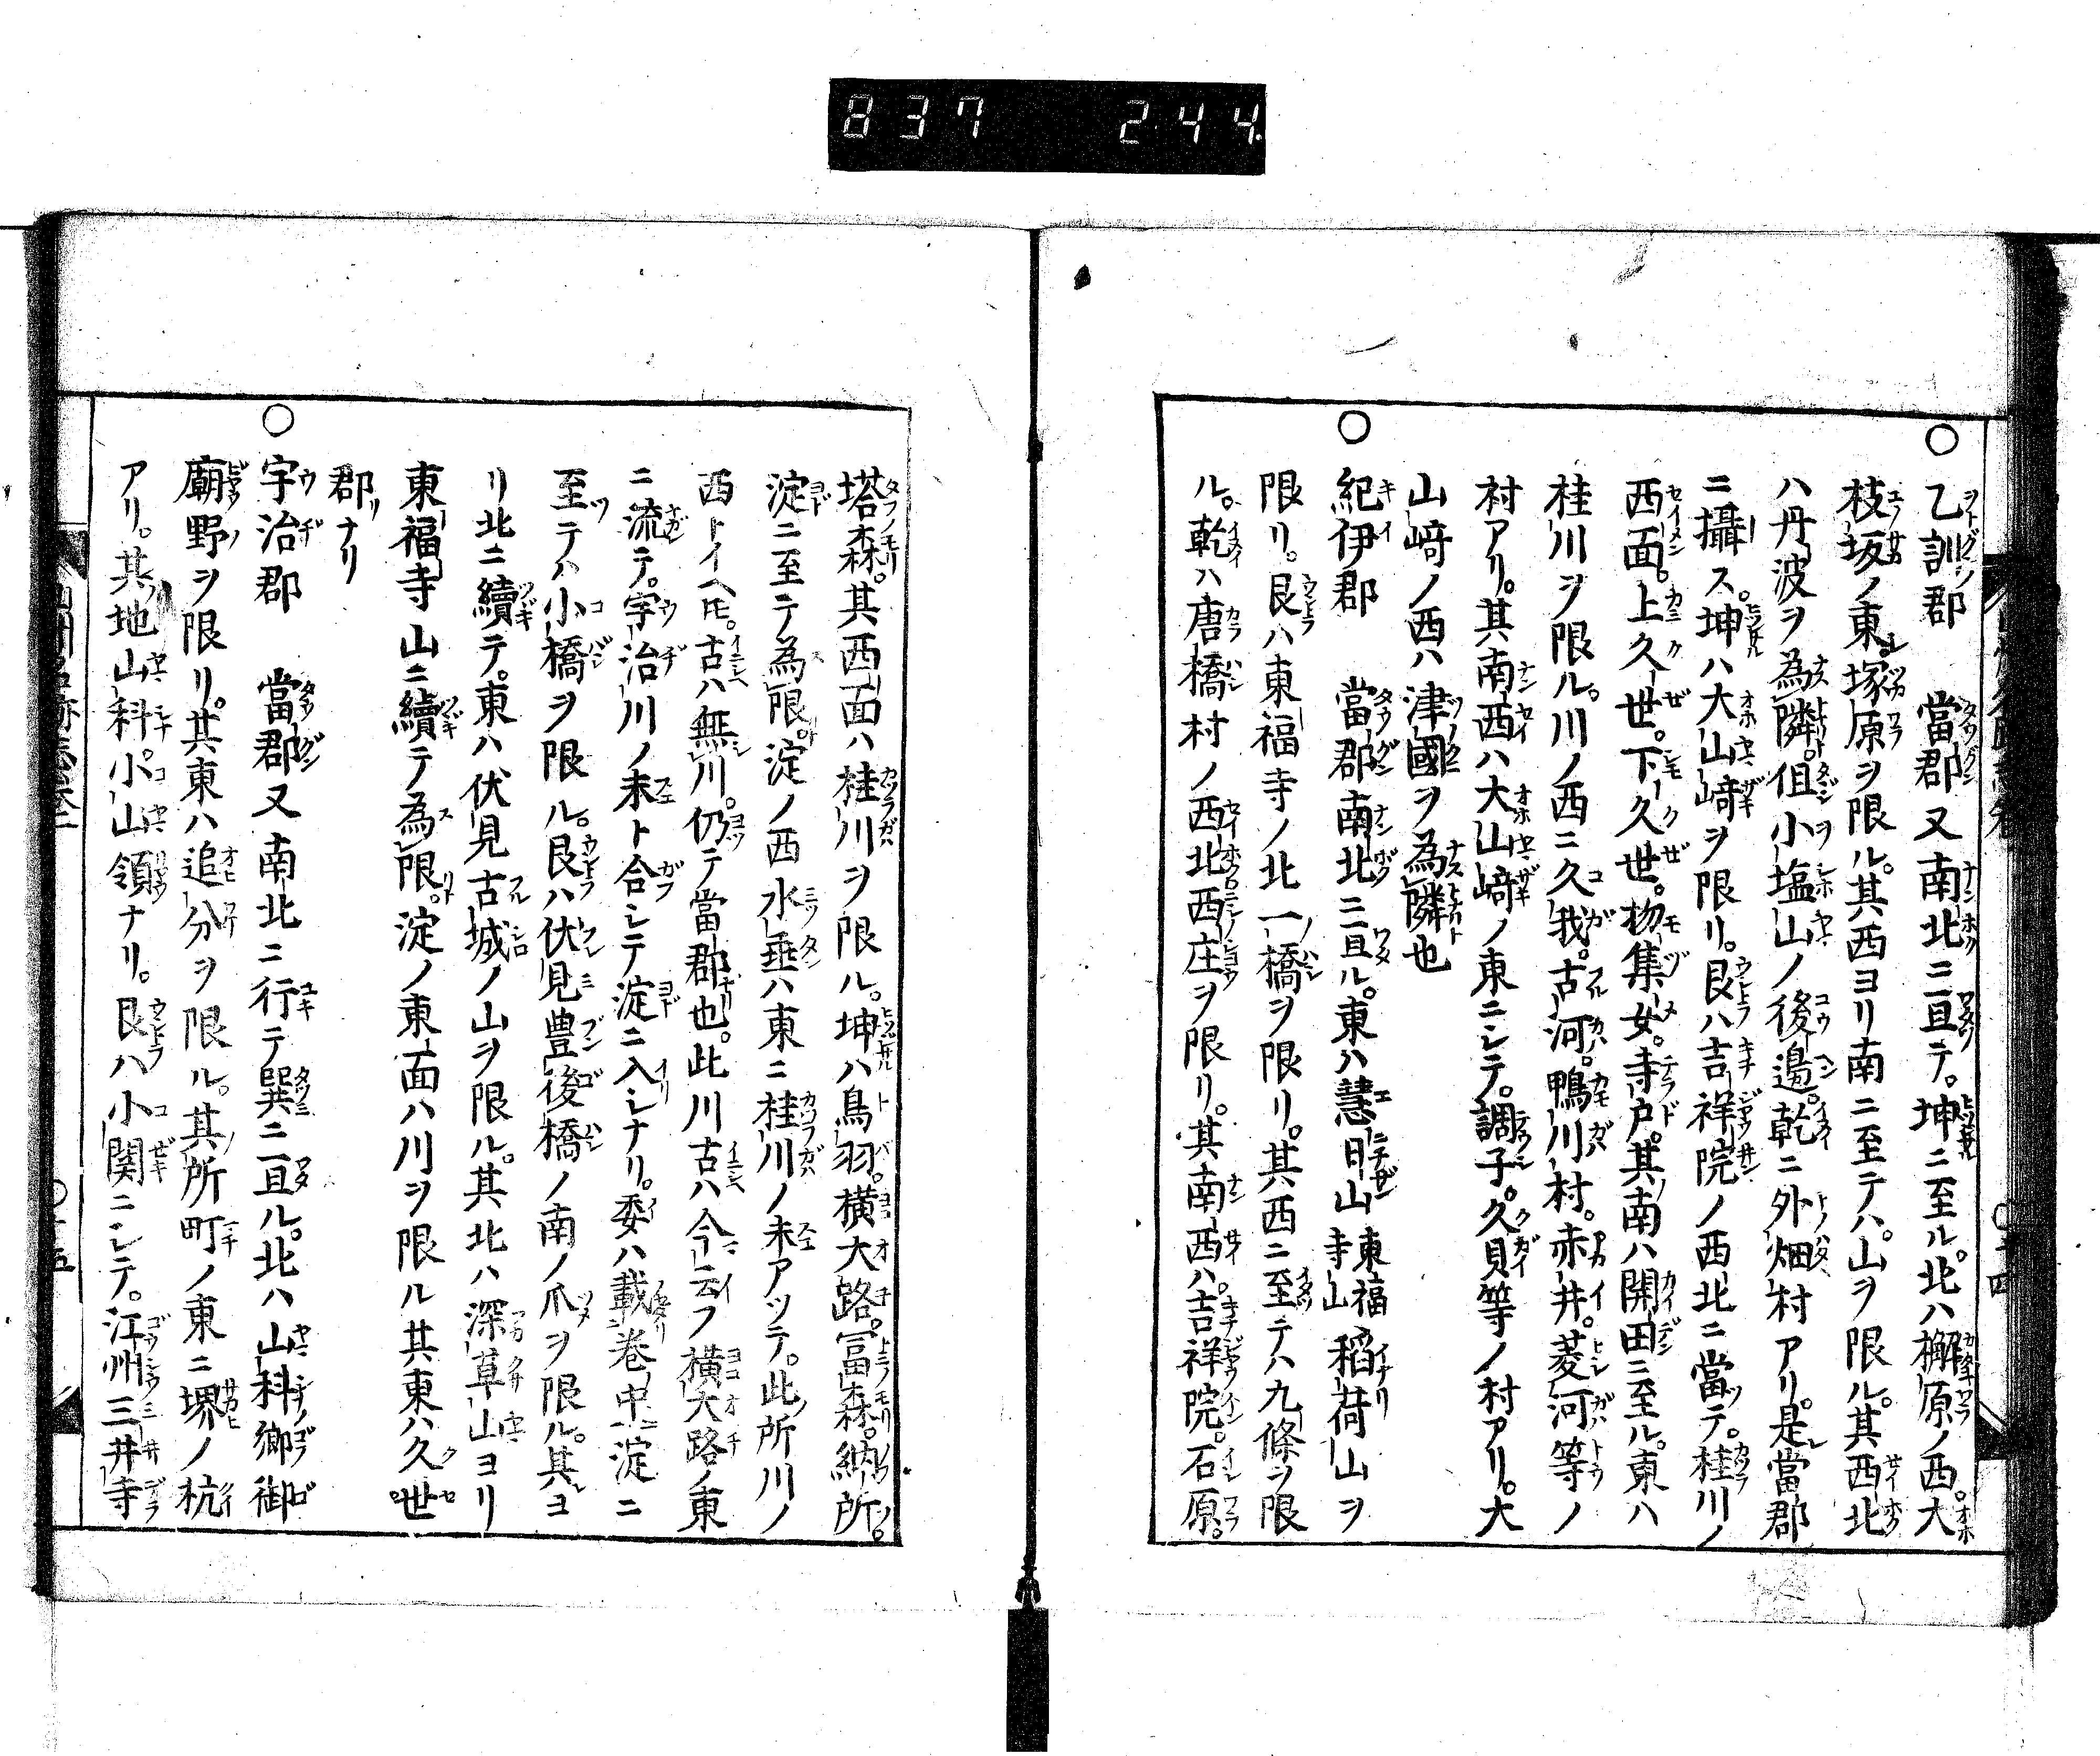 837 244
○乙訓郡　當郡又南北ニ亘テ。坤ニ至ル。北ハ樫原ノ西。大
枝坂ノ東。塚原ヲ限ル。其西ヨリ南ニ至テハ。山ヲ限ル。其西北
ハ丹波ヲ為隣。但小塩山ノ後邉。乾ニ外畑村アリ。是當郡
ニ攝ス。坤ハ大山﨑ヲ限リ。艮ハ吉祥院ノ西北ニ當テ。桂川ノ
西面。上久世。下久世。物集女。寺戸。其南ハ開田ニ至ル。東ハ
桂川ヲ限ル。川ノ西ニ久我。古河。鴨川村。赤井。菱河等ノ
村アリ。其南西ハ大山﨑ノ東ニシテ。調子。久貝等ノ村アリ。大
山﨑ノ西ハ津國ヲ為隣也
○紀伊郡　當郡南北ニ亘ル。東ハ慧日山東福寺山稻荷山ヲ
限リ。艮ハ東福寺ノ北一橋ヲ限リ。其西ニ至テハ九條ヲ限
ル。乾ハ唐橋村ノ西北西庄ヲ限リ。其南西ハ吉祥院。石原。
塔森。其西面ハ桂川ヲ限ル。坤ハ鳥羽。横大路。冨森。納所。
淀ニ至テ為限。淀ノ西水垂ハ東ニ桂川ノ末アツテ。此所川ノ
西トイヘ𪜈。古ハ無川。仍テ當郡也。此川古ハ今云フ横大路ノ東
ニ流テ。宇治川ノ末ト合シテ淀ニ入シナリ。委ハ載巻中淀ニ
至テハ小橋ヲ限ル。艮ハ伏見豊後橋ノ南ノ爪ヲ限ル。其ヨ
リ北ニ續テ。東ハ伏見古城ノ山ヲ限ル。其北ハ深草山ヨリ
東福寺山ニ續テ為限。淀ノ東面ハ川ヲ限ル其東ハ久世
郡ナリ
○宇治郡　當郡又南北ニ行テ巽ニ亘ル。北ハ山科郷御
廟野ヲ限リ。其東ハ追分ヲ限ル。其所町ノ東ニ堺ノ杭
アリ。其地山科。小山領ナリ。艮ハ小関ニシテ。江州三井寺